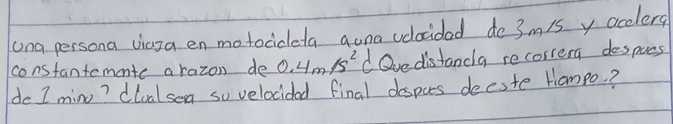 una persona viaja en motocicleta a una velocidad de 3m/s y acelera
constantemente a razon de 0.4m/s² ¿Que distancia recorrera despues
de 1 minu? ¿Cual sera su velocidad final despues de este tiempo.?